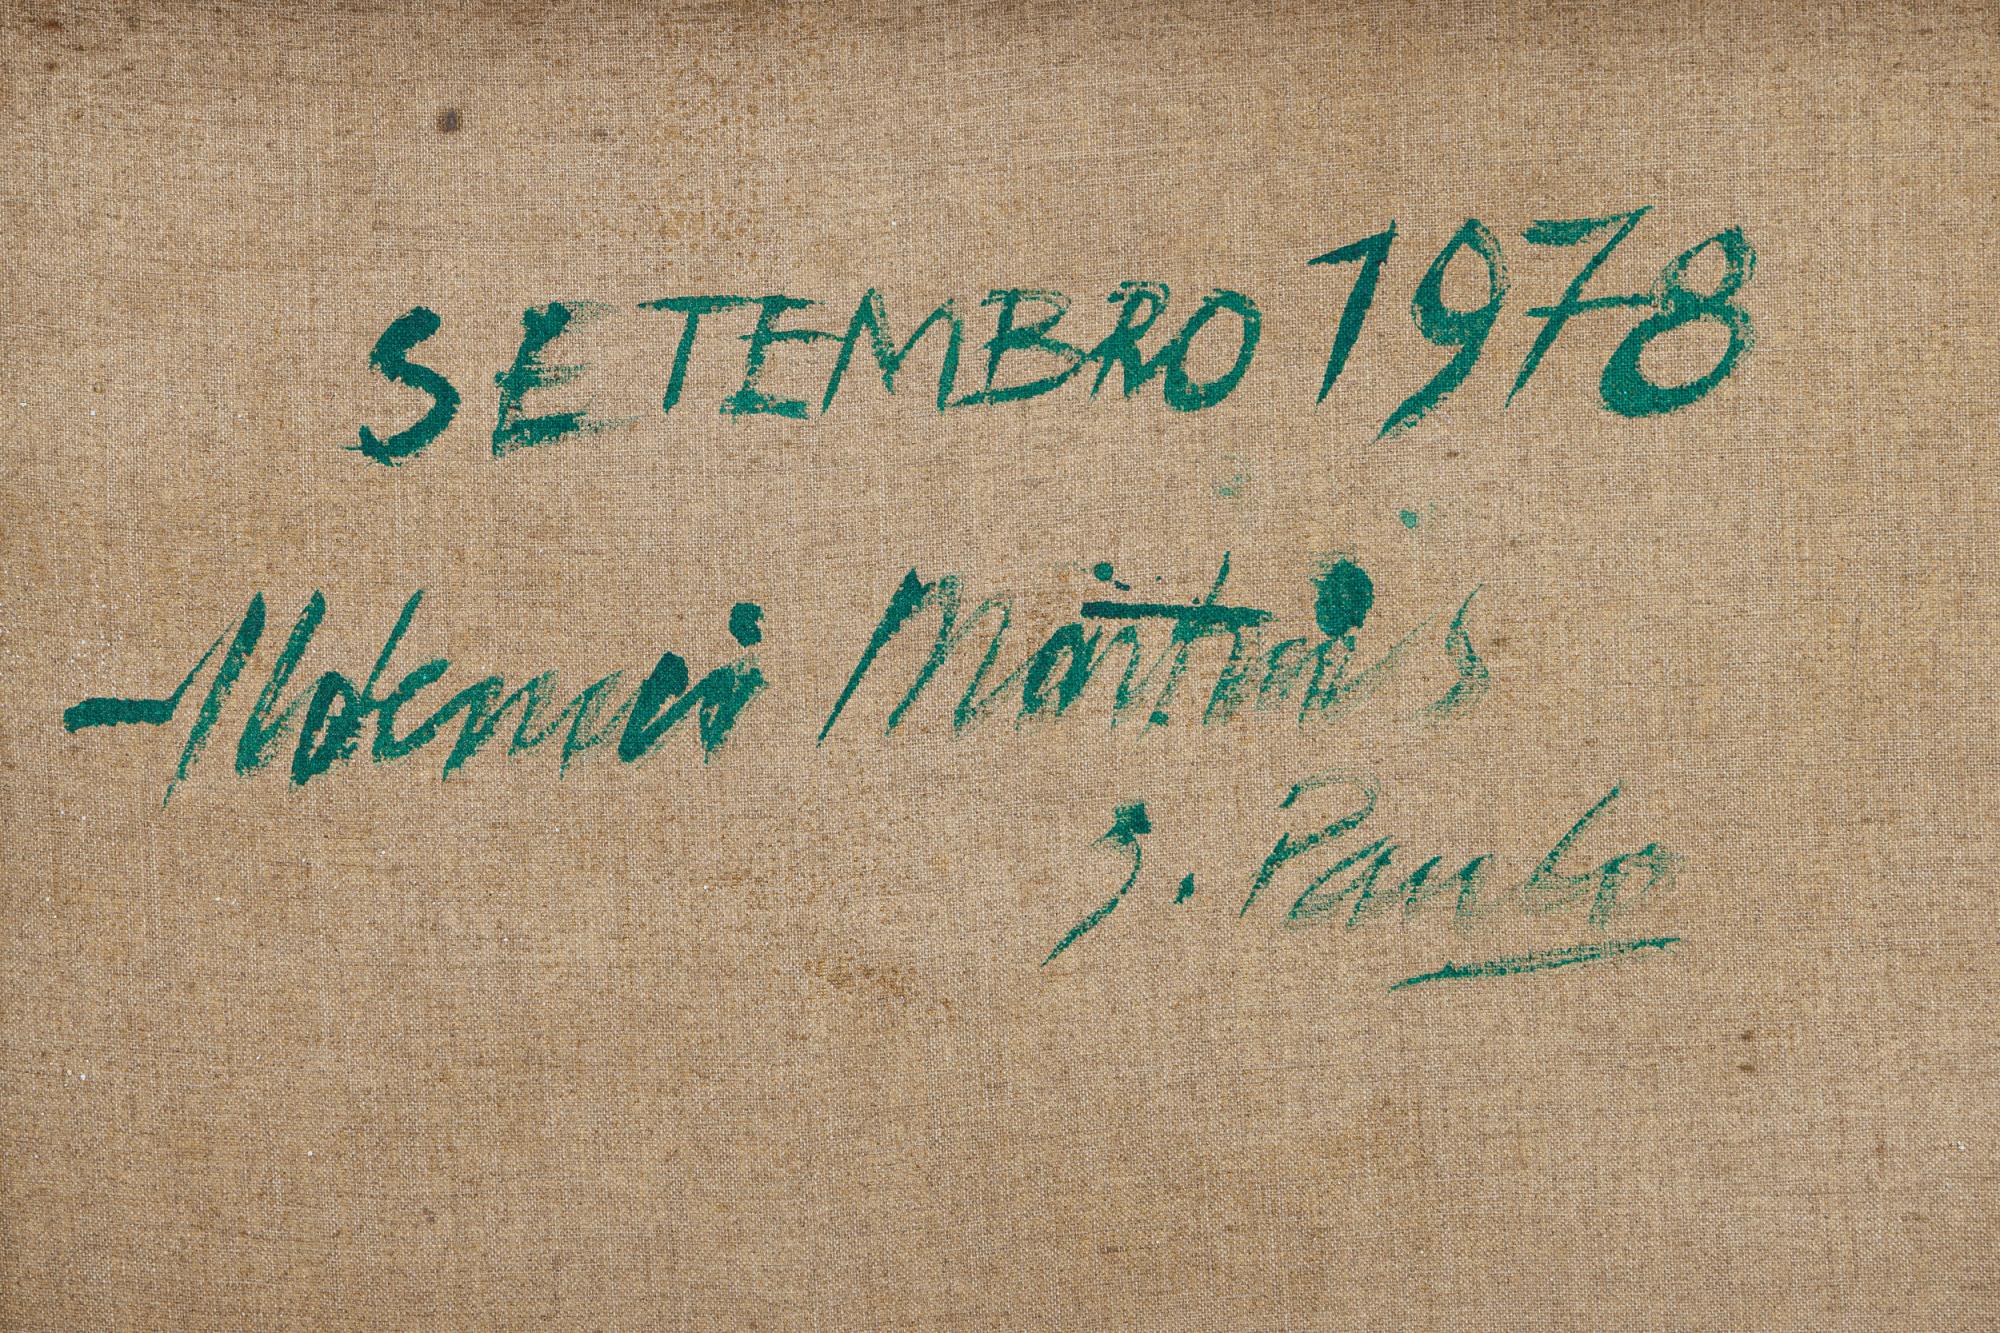 SETEMBRO 1978
Aldemir Martins
S. Paulo